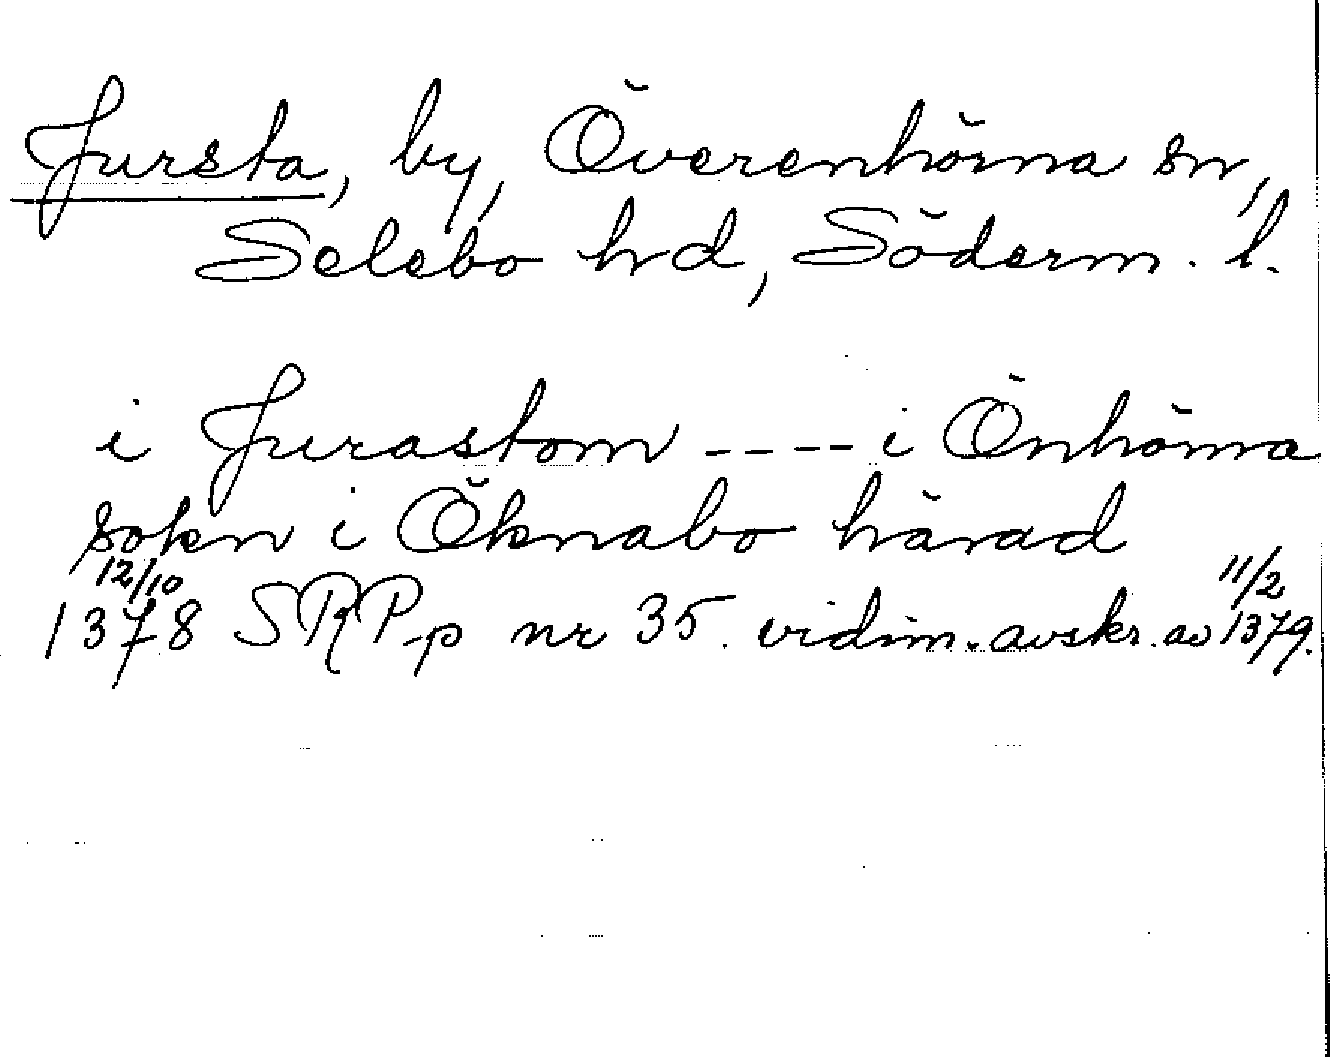 Jursta, by, Överenhörna sn,
Selebo hd, Söderm. l.
i Jurastom ---- i Önhörna
sokn i Öknabo härad
12/10 11/2
1378 SRPp nr 35. vidim. avskr. av 1379.